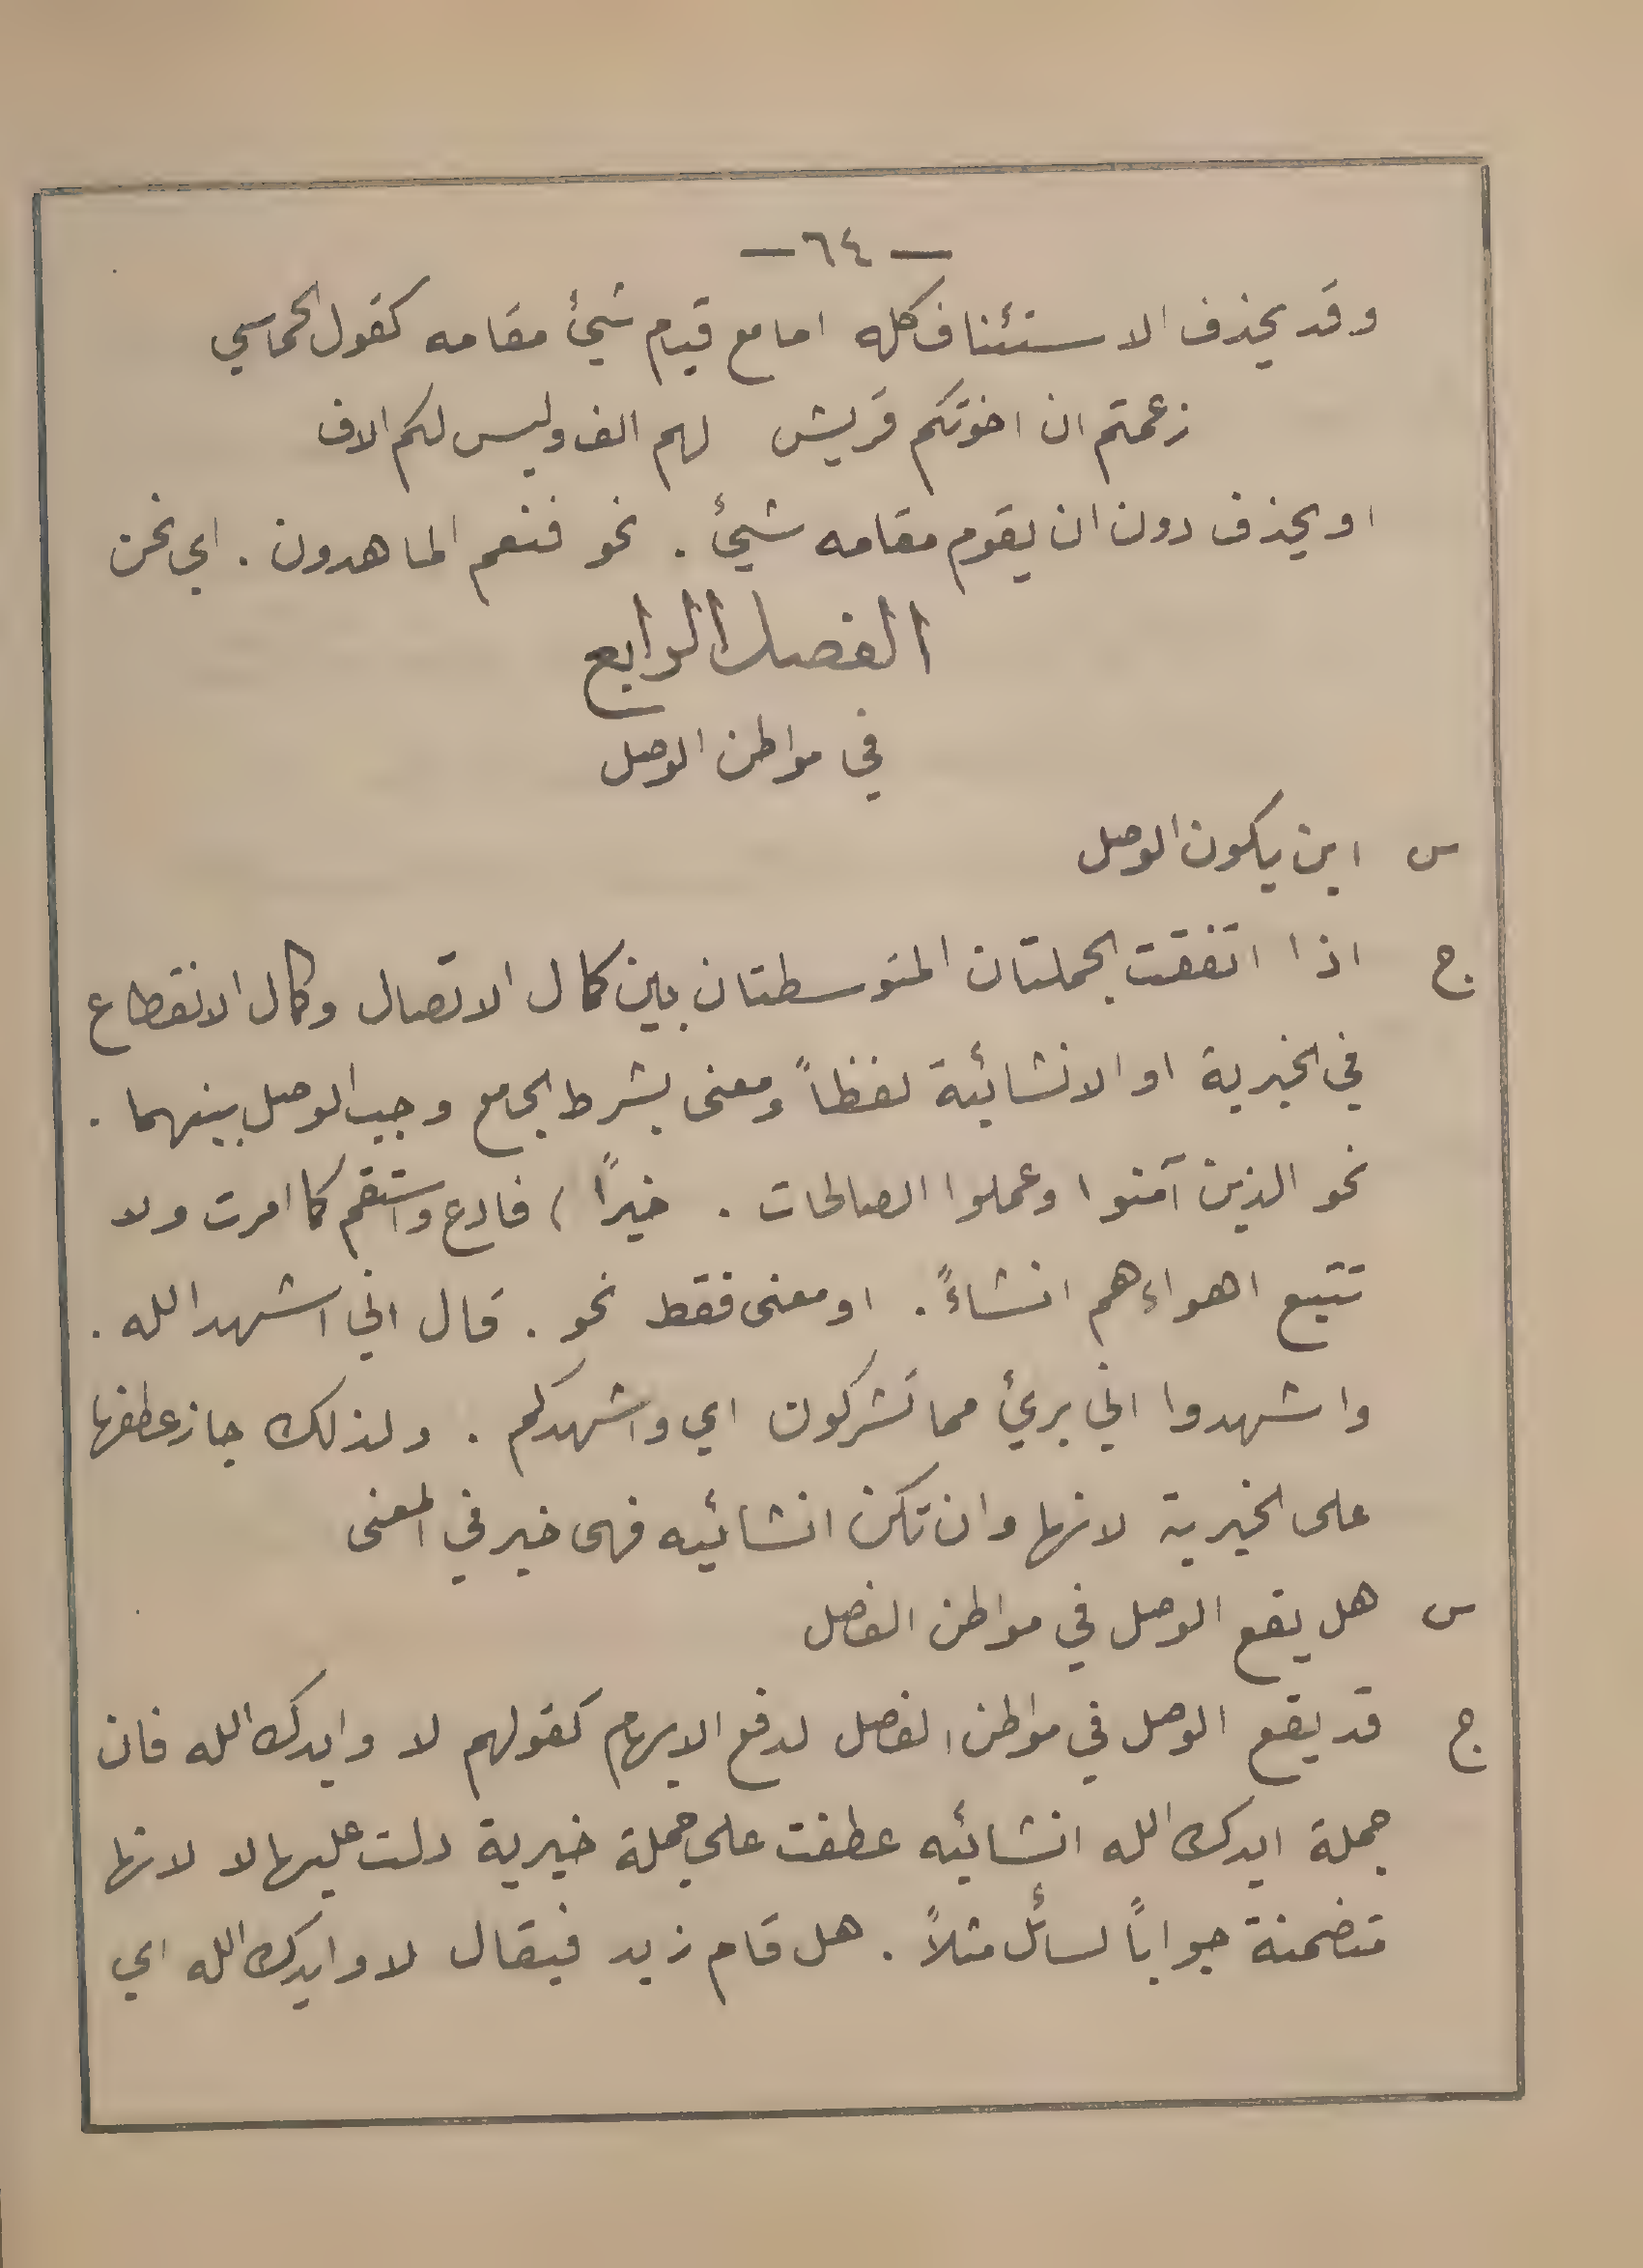 — ٦٤ —
وقد يحذف الاستئناف كله اما مع قيام شيئ مقامه كقول الحماسي
زعمتم ان اخوتكم قريش لهم الف وليس لكم الاف
او يحذف دون ان يقوم مقامه شيئ . نحو فنعم الماهدون . اي نحن
الفصل الرابع
في مواطن الوصل
س اين يكون الوصل
ج اذا اتفقت الجملتان المتوسطتان بين كمال الاتصال وكمال الانقطاع
في الخبرية او الانشائية لفظاً ومعنى بشرط الجامع وجب الوصل بينهما .
نحو الذين آمنوا وعملوا الصالحات . خبراً ، فادع واستقم كما امرت ولا
تتبع اهواءهم انشاءً . او معنى فقط نحو . قال اني اشهد الله .
واشهدوا اني بريئ مما تشركون اي واشهدكم . ولذلك جاز عطفها
على الخبرية لانها وان تكن انشائيه فهى خبر في المعنى
س هل يقع الوصل في مواطن الفصل
ج قد يقع الوصل في مواطن الفصل لدفع الايهام كقولهم لا وايدك الله فان
جملة ايدك الله انشائيه عطفت على جملة خبرية دلت عليها لا لانها
متضمنة جواباً لسائل مثلاً . هل قام زيد فيقال لا وايدك الله اي